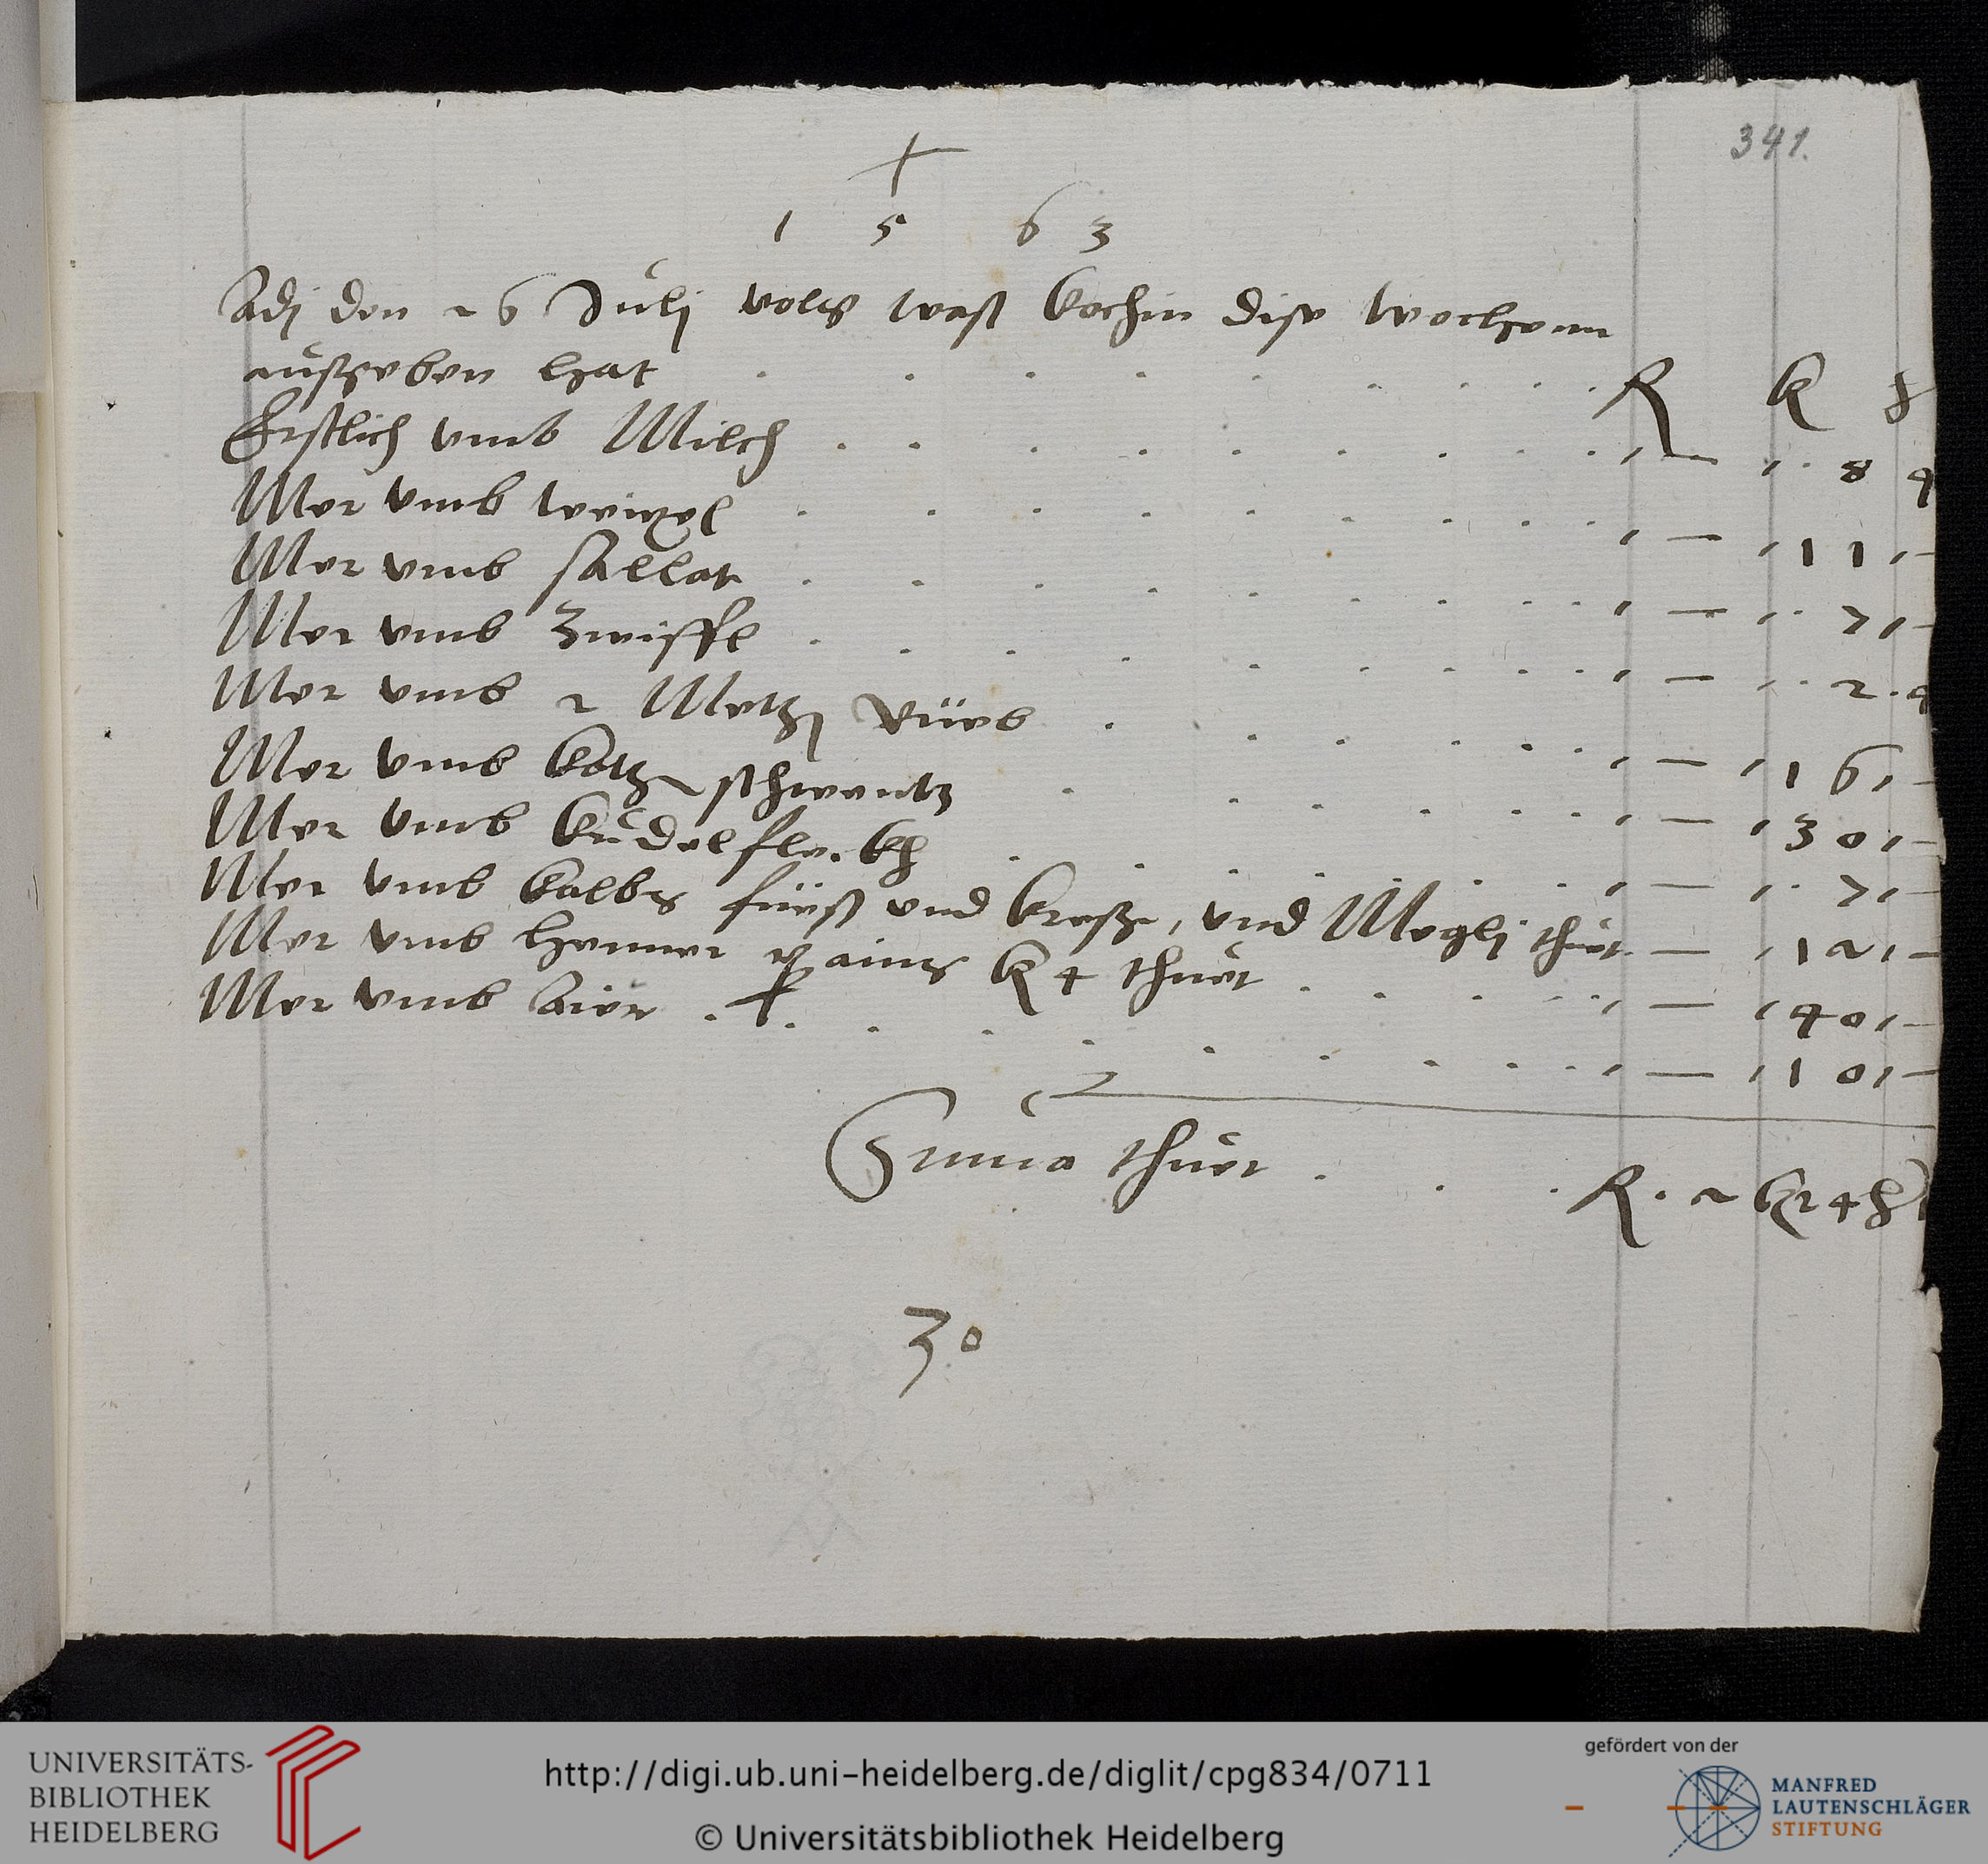 341.
+
1 5 6 3
Adj den 26 Julj volgt waß kochin dise wochenn
außgeben hat . . . . . . . . . R k ₰
Erstlich vmb Milch . . . . . . . . . , — , . 8 4
Mer vmb weixel . . . . . . . . . , — , 11 , —
Mer vmb sallat . . . . . . . . . , — , . 7 , —
Mer vmb Zwiffl . . . . . . . . . , — , . 2 . 4
Mer vmb 2 Metzj Rüeb . . . . . . . , — , 16 , —
Mer vmb kotz schwentz . . . . . . . , — , 30 , —
Mer vmb kudelfleckh . . . . . . . , — , . 7 , —
Mer vmb kalbs füeß vnd kreß, vnd Meglj thuet — , 12 , —
Mer vmb hennen p ains k 4 thuet . . . . . , — , 40 , —
Mer vmb Aier . . . . . . . . . , — , 10 , —
Suma thuet . . . R . 2 kr 24 ₰
30
UNIVERSITÄTS-
BIBLIOTHEK
HEIDELBERG
http://digi.ub.uni-heidelberg.de/diglit/cpg834/0711
© Universitätsbibliothek Heidelberg
gefördert von der
MANFRED
LAUTENSCHLÄGER
STIFTUNG